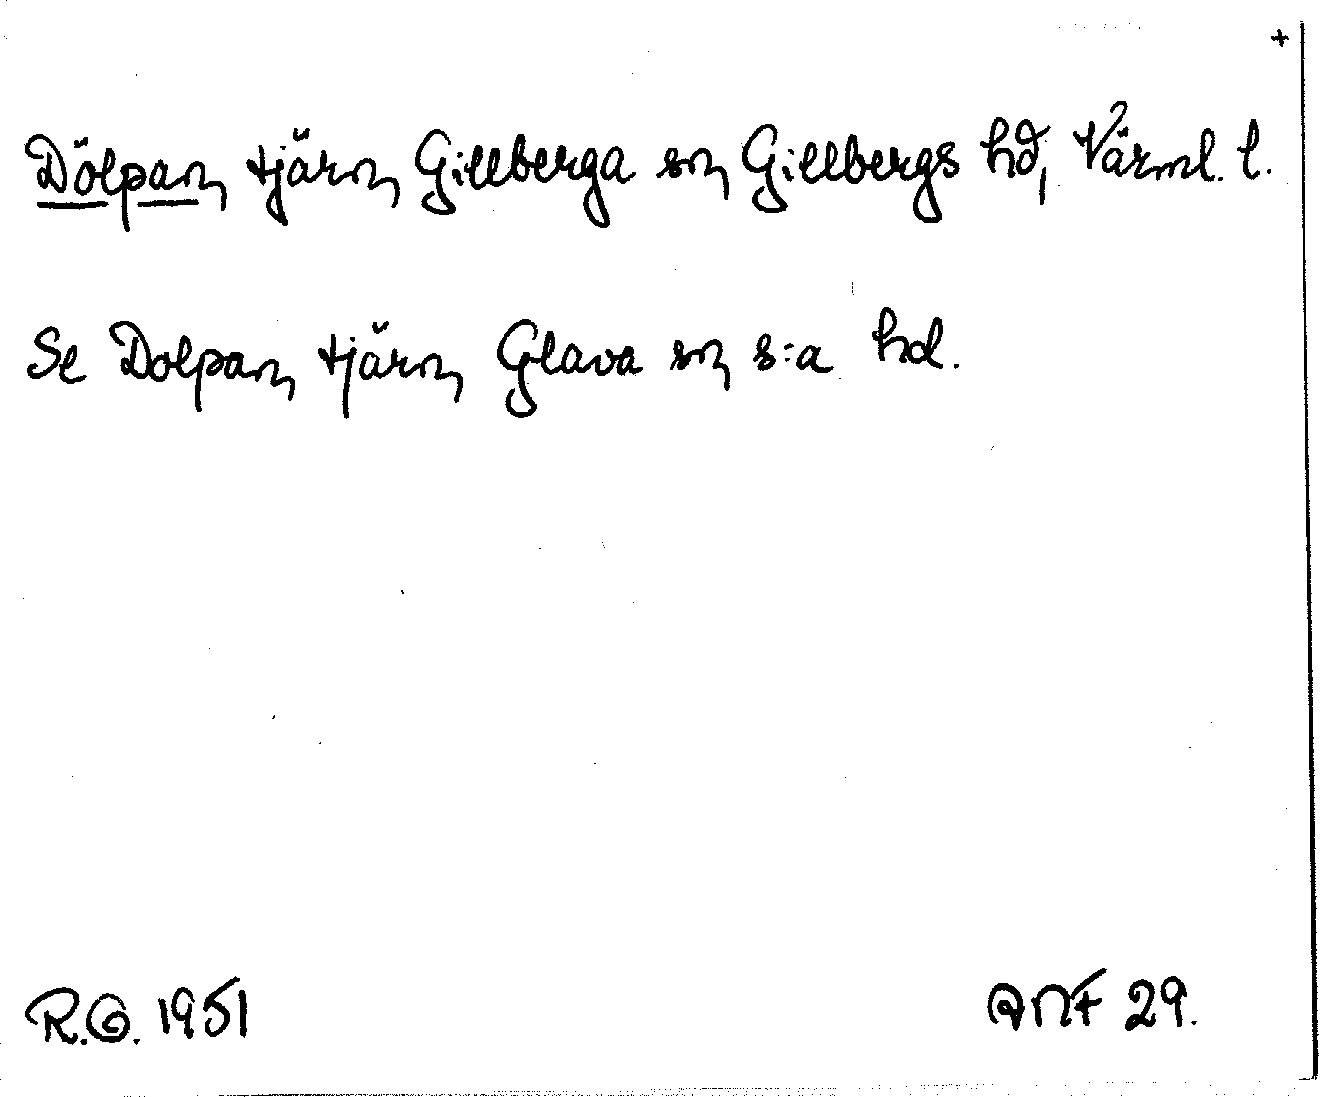 +
Dölpan, tjärn, Gillberga sn, Gillbergs hd, Värml. l.
Se Dolpan, tjärn, Glava sn, s:a hd.
R.G. 1951 ANF 29.